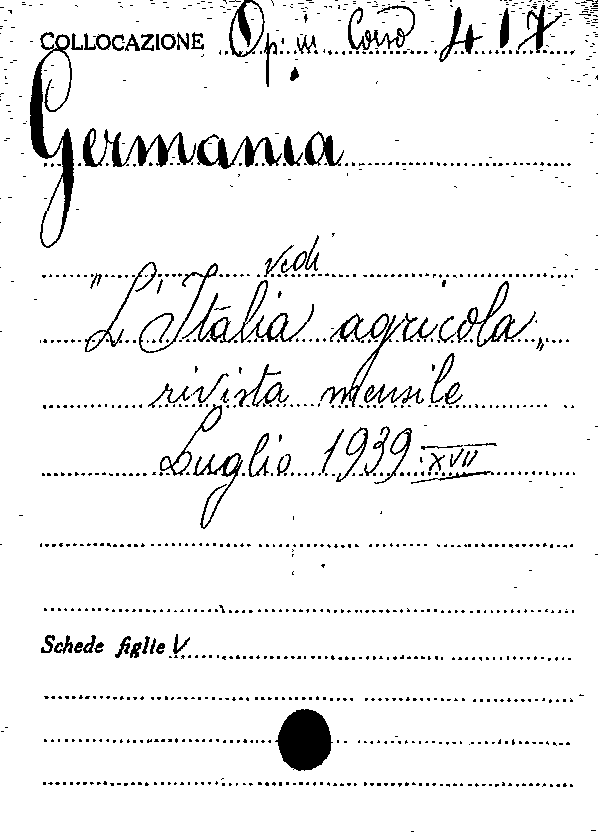 COLLOCAZIONE Op. in Corso 417
Germania
vedi
"L'Italia agricola"
rivista mensile
Luglio 1939-XVII
Schede figlie V